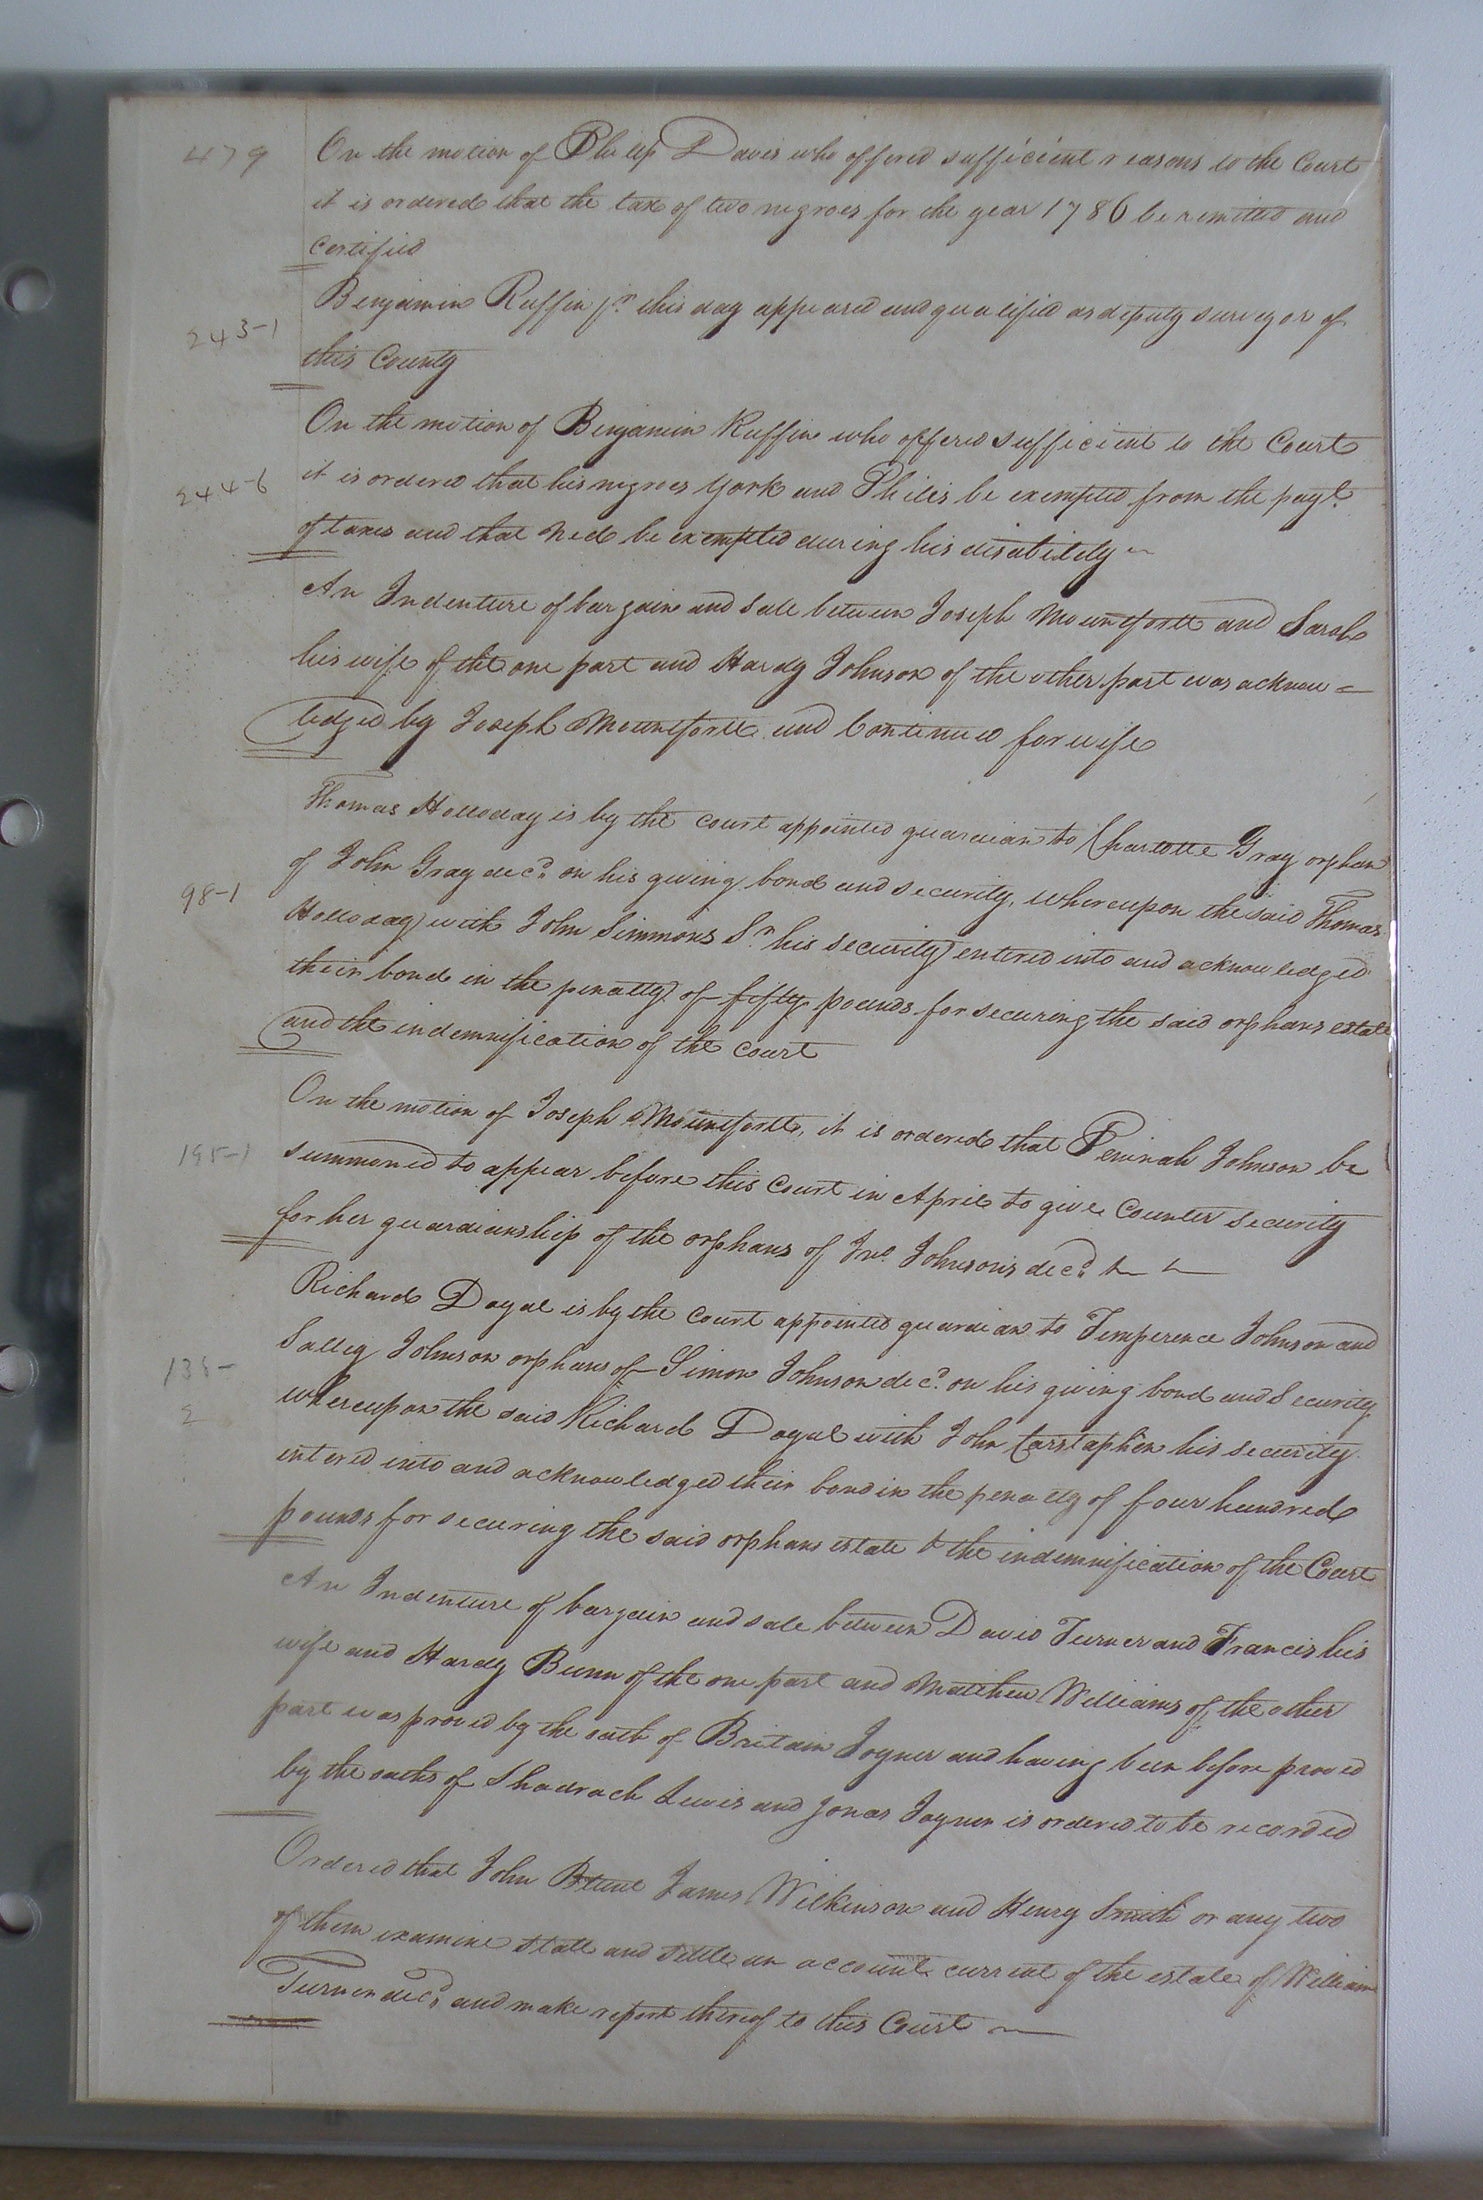 479
On the motion of Philip Davis who offered sufficient reasons to the Court
it is ordered that the tax of two negroes for the year 1786 be remitted and
certified
243-1
Benjamin Ruffin jr. this day appeared and qualified as deputy surveyor of
this County
On the motion of Benjamin Ruffin who offered sufficient to the Court
244-6
it is ordered that his negroes York and Philis be exempted from the payt.
of taxes and that Ned be exempted during his disability
An Indenture of bargain and sale between Joseph Mountfortt and Sarah
his wife of the one part and Hardy Johnson of the other part was acknow =
ledged by Joseph Mountfortt and Continued for wife
Thomas Holloday is by the court appointed guardian to Charlotte Gray orphan
98-1
of John Gray decd. on his giving bond and security, whereupon the said Thomas
Holloday with John Simmons Sr his security entered into and acknowledged
their bond in the penalty of fifty pounds for securing the said orphans estate
and the indemnification of the court
On the motion of Joseph Mountfortt, it is ordered that Peninah Johnson be
195-1
summoned to appear before this Court in April to give Counter security
for her guardianship of the orphans of Jno. Johnson's decd.
Richard Dogal is by the court appointed guardian to Temperence Johnson and
Salley Johnson orphans of Simon Johnson decd. on his giving bond and Security
whereupon the said Richard Dogal with John Carstaphen his security
2
intered into and acknowledged their bond in the penalty of four hundred
pounds for securing the said orphans estate & the indemnification of the Court
An Indenture of bargain and sale between David Turner and Francis his
wife and Hardy Bunn of the one part and Matthew Williams of the other
part was proved by the oath of Britain Joyner and having been before proved
by the oaths of Shadrach Lewis and Jonas Joyner is ordered to be recorded
Ordered that John Blunt James Wilkinson and Henry Smith or any two
of them examine state and settle an account current of the estate of William
Turner decd. and make report thereof to this Court